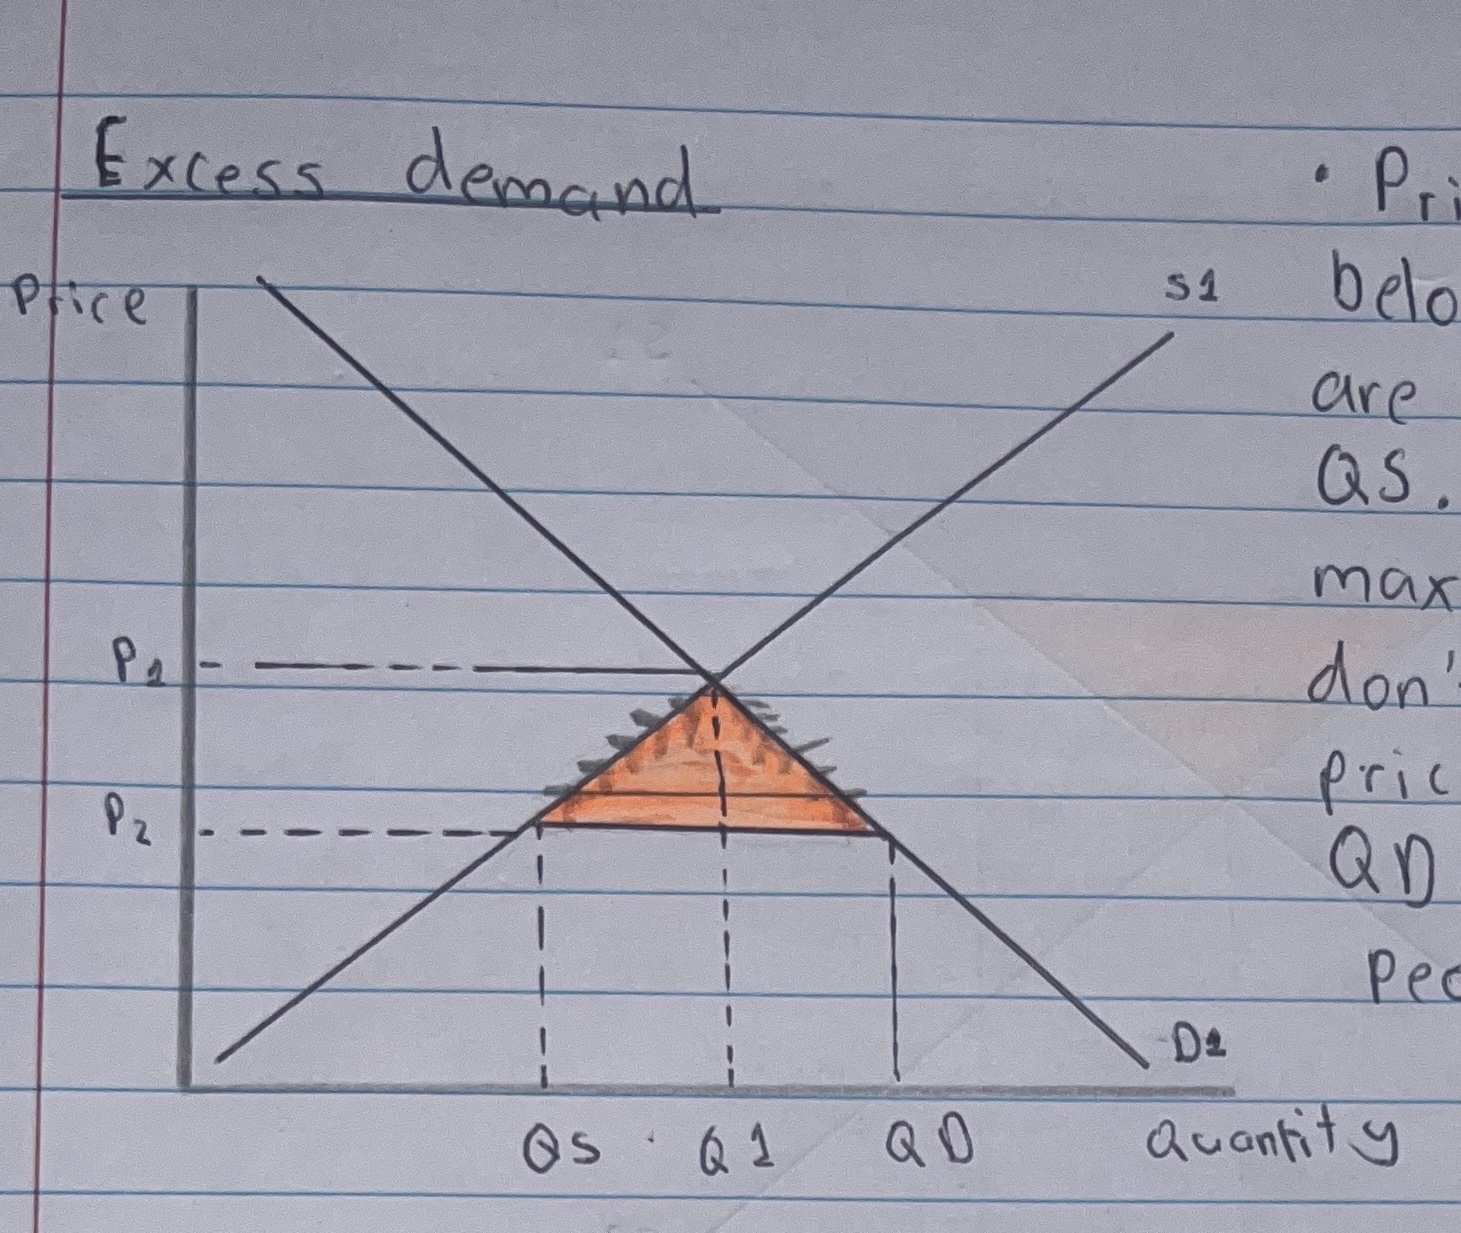 Excess demand
Price
S1
P1
P2
D1
QS Q1 QD Quantity
• Pri
belo
are
QS.
max
don'
pric
QD
pec